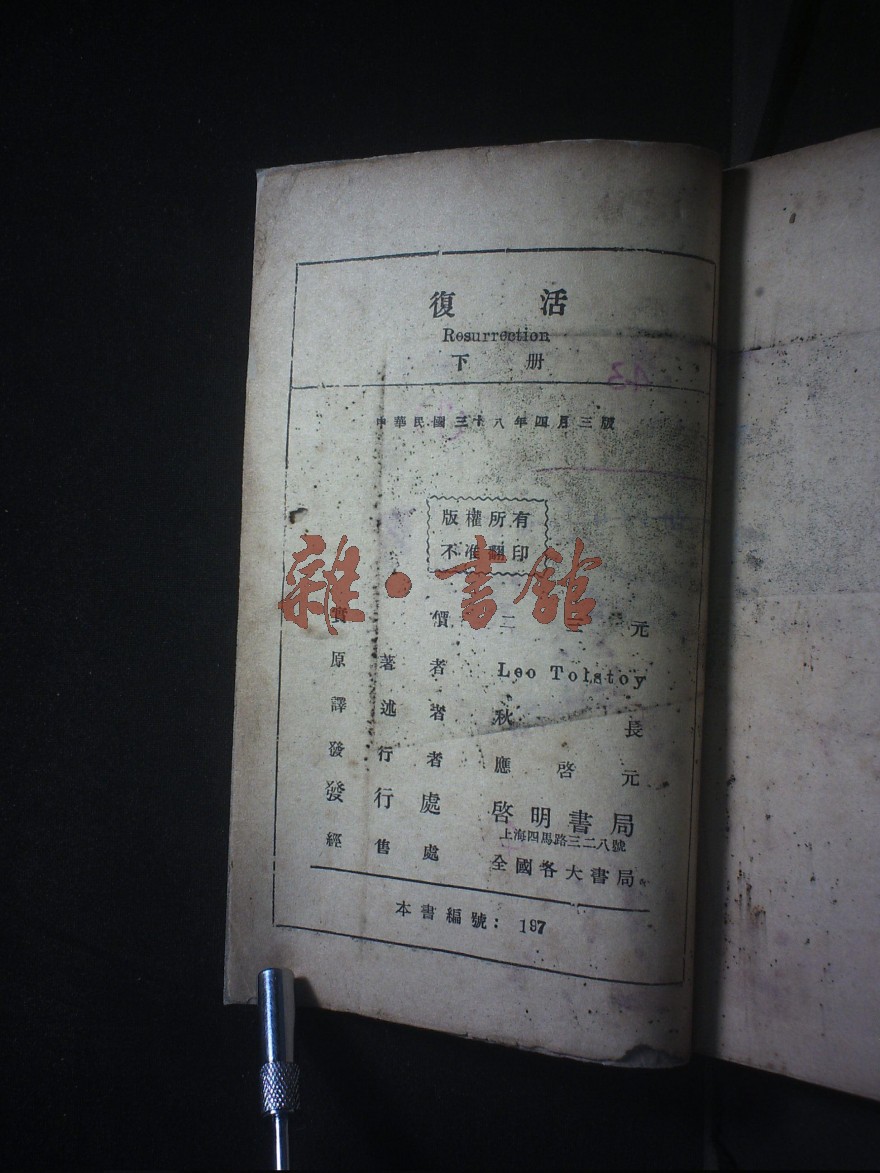 復活
Resurrection
下册
中華民國三十八年四月三版
版權所有
不准翻印
雜·書舘
實價 二 元
原著者 Leo Tolstoy
譯述者 秋長
發行者 應啓元
發行處 啓明書局
上海四馬路三二八號
經售處 全國各大書局
本書編號: 197